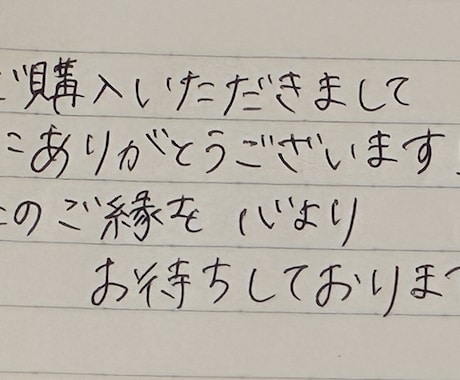 ご購入いただきまして
にありがとうございます
のご縁を心より
お待ちしておりま